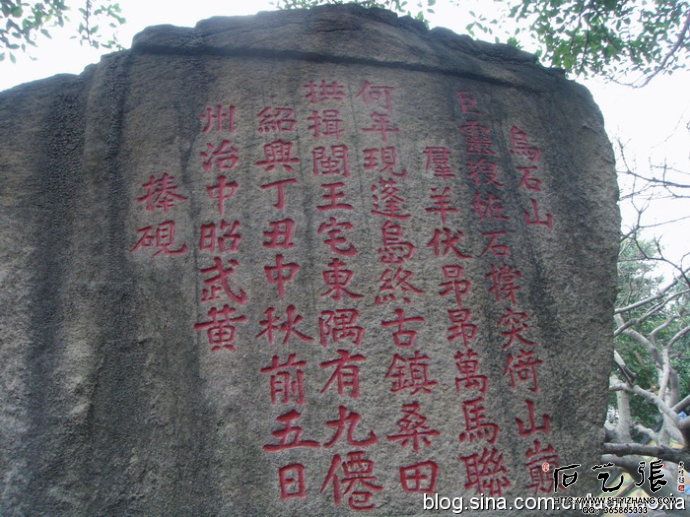 烏石山
巨靈石突倚山巔
羣羊伏昂昂萬馬聯
何年現蓬島終古鎮桑田
拱揖閩王宅東隅有九僊
紹興丁丑中秋前五日
州治中昭武黃
捧硯
石艺張
HTTP://WWW.SHIYIZHANG.COM
QQ:365865333